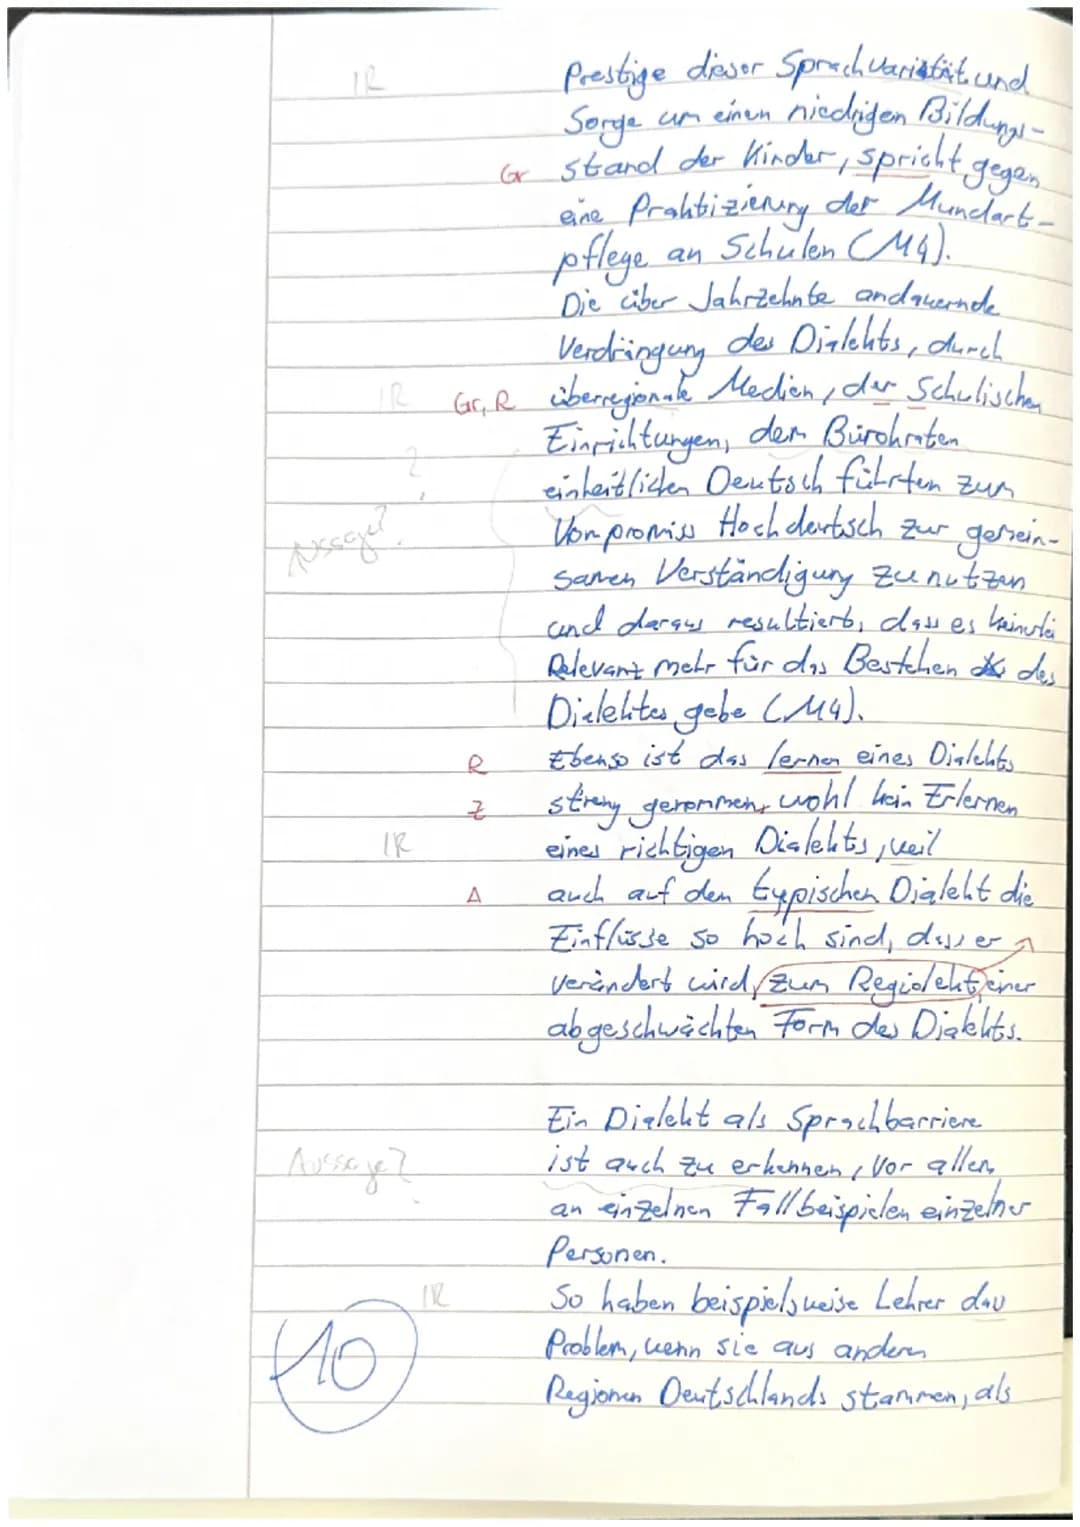 IR Prestige dieser Sprachvarietät und
Sorge um einen niedrigen Bildungs-
Gr stand der Kinder, spricht gegen
eine Praktizierung der Mundart-
pflege an Schulen (M4).
Die über Jahrzehnte andauernde
Verdrängung des Dialekts, durch
IR Gr, R überregionale Medien, der Schulischen
Einrichtungen, dem Bürokraten
? einheitlichen Deutsch führten zum
Aussage? Kompromiss Hochdeutsch zur gemein-
samen Verständigung zu nutzen
und daraus resultiert, dass es keinerlei
Relevanz mehr für das Bestehen des
Dialektes gebe (M4).
R Ebenso ist das lernen eines Dialekts
Z streng genommen, wohl kein Erlernen
IR eines richtigen Dialekts, weil
A auch auf den typischen Dialekt die
Einflüsse so hoch sind, dass er
verändert wird, zum Regiolekt, einer
abgeschwächten Form des Dialekts.
Ein Dialekt als Sprachbarriere
Aussage? ist auch zu erkennen, vor allem
an einzelnen Fallbeispielen einzelner
Personen.
IR So haben beispielsweise Lehrer das
10 Problem, wenn sie aus anderen
Regionen Deutschlands stammen, als